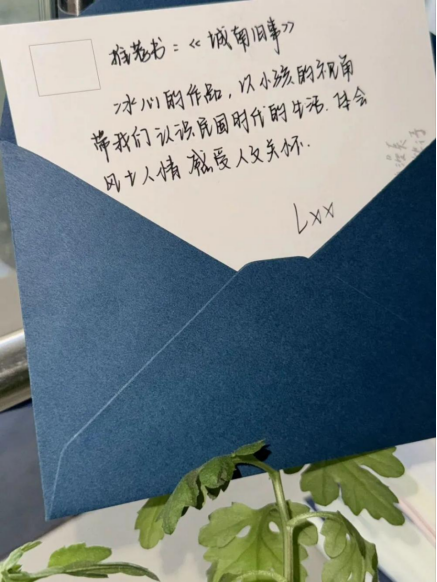 推荐书：《城南旧事》
冰心的作品，以小孩的视角
带我们认识民国时代的生活．体会
风土人情 感受人文关怀．
Lxx